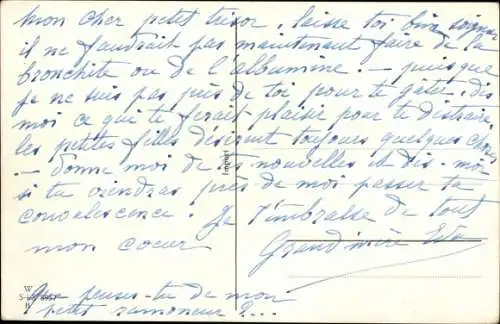 mon cher petit trésor. laisse toi bien soigner
il ne faudrait pas maintenant faire de la
bronchite ou de l'albumine. – puisque
je ne suis pas près de toi pour te gâter. dis
moi ce que te ferait plaisir pour te distraire
les petites filles désirent toujours quelques choses
– donne moi de tes nouvelles et dis-moi
si tu viendras près de moi passer ta
convalescence. Je t'embrasse de tout
mon coeur
Grand'mère
Que penses-tu de mon
petit ramoneur ?...
Imprimé
W